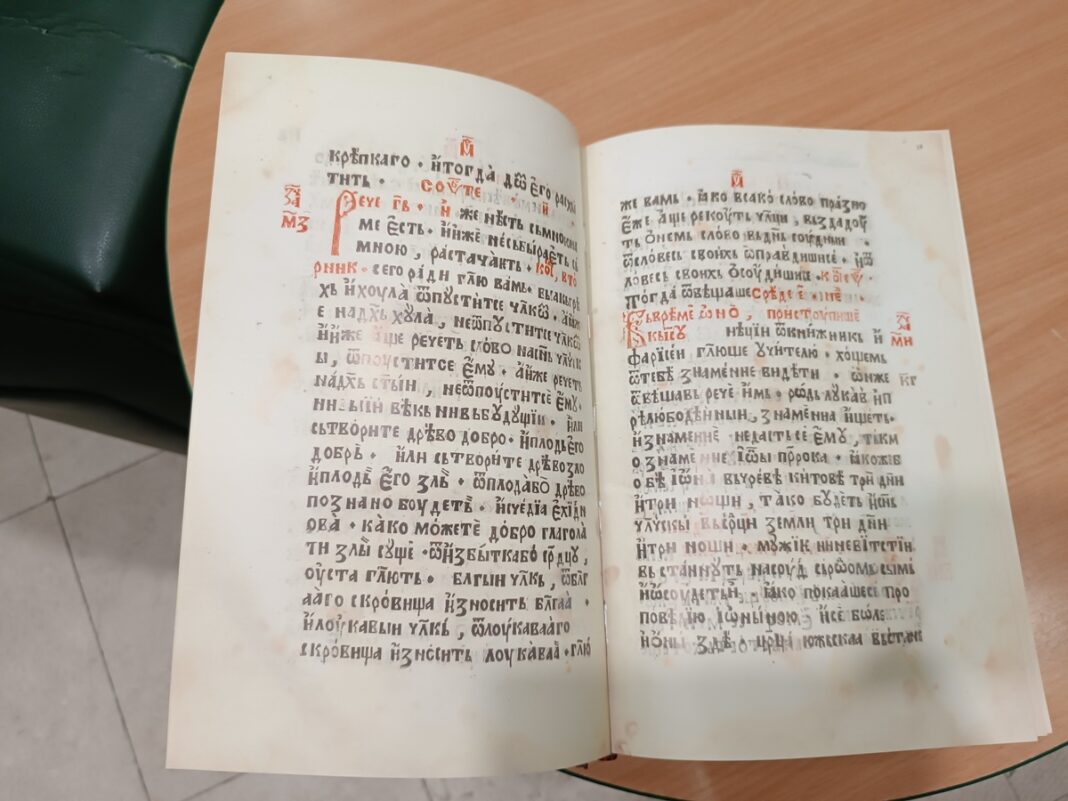 м҃
крѣпкаго · и҆тогда̀ дѡ҄ е҆го̀ расхи
тить · соуⷠте
за҃ м҃з
Рече гь҃ · и҆ же нѣсть сьмною сь
ме е҆сть · и҆и҆же не сьбыраеть сь
мною , растачаѥть · ко҃ , вто
рник · сего ра́ди гл҃ю вамь · вьсакь грѣ
хь и҆хоула̀ ѿпꙋстит се чл҃кѡ҄ · а҆ꙗже
е на дх҃ь хꙋла̀ , не ѿпꙋстит се чл҃кѡ҄
и҆и҆же а҆ще речеть сло́во на сн҃ь чл҃чьк
ы , ѿпоустит се е҆мꙋ · а҆и҆же речеть
на дх҃ь ст҃ыи , не ѿпоустит се е҆мꙋ ·
ни вь сїи вѣкь ни вь бꙋдꙋщїи · и҆ли
сьтворите дрѣво добро · и҆плодь е҆го
добрь · и҆ли сьтвори́те дрѣво зло
и҆плодь е҆го зль · ѿплода бо̀ дрѣво
познано боудеть · и҆счедїа е҆хїдн
ова · ка́ко мо́жете добро глагола
ти зль̀ сꙋще · ѿ и҆збытка бо ср҃дцꙋ ,
оуста гл҃ють · бл҃гыи чл҃кь , ѿ бл҃г
ааго скро́вища и҆зносить бл҃гаа ·
и҆лоукавыи чл҃кь , ѿ лоукавааго
скро́вища и҆зно́сить лоука́ваа · гл҃ю
и҃
же вамь · ꙗко всако сло́во пра́зно
е҆же а҆ще рекоуть чл҃ци , вьздадоу
ть о҆немь слово вьднь̀ соудныи ·
ѿ слове́сь свои́хь ѡ҆правдиши се · и҆ ѿ
ловесь свои́хь ѡ҆соудиши се · ко҃
Тогда̀ ѿвѣщаше сре́де
Вь врѣме ѡ҆но̀ , пристоупише
за҃ м҃и
кь і҆с҃ꙋ нѣции ѿ книжникь и҆
фарїсеи гл҃юще оучи́телю · хо́щемь
ѿ тебѣ знаменне ви́дети · ѡ҆ни же
к҃г
ѿвѣщавь рече и҆мь · рѡдь лꙋкавь и҆ п
рѣлюбодѣи́ныи , знаменна и҆щеть ·
и҆знаме́ние не дасть се е҆мꙋ , тькм
о знаме́ние і҆ѡны пр҃рока · ꙗкоже б
о бѣ і҆ѡна̀ вь чрѣвѣ китовѣ три дн҃и
и҆три нощи , та́ко бꙋдеть и҆ сн҃ь
чл҃чскы вь ср҃ци землѝ три дн҃и
и҆три нощи · мꙋжїе нине́витстїи
вь станнꙋть на соуд сь рѡ҆омь симь
и҆ ѡ҆соудеть и҆ · ꙗко покааше се про
повѣ́дїю і҆ѡныною , и҆се боль
и҆ѡ́ны здѣ̀ · цр҃ци южьскаа вьстане